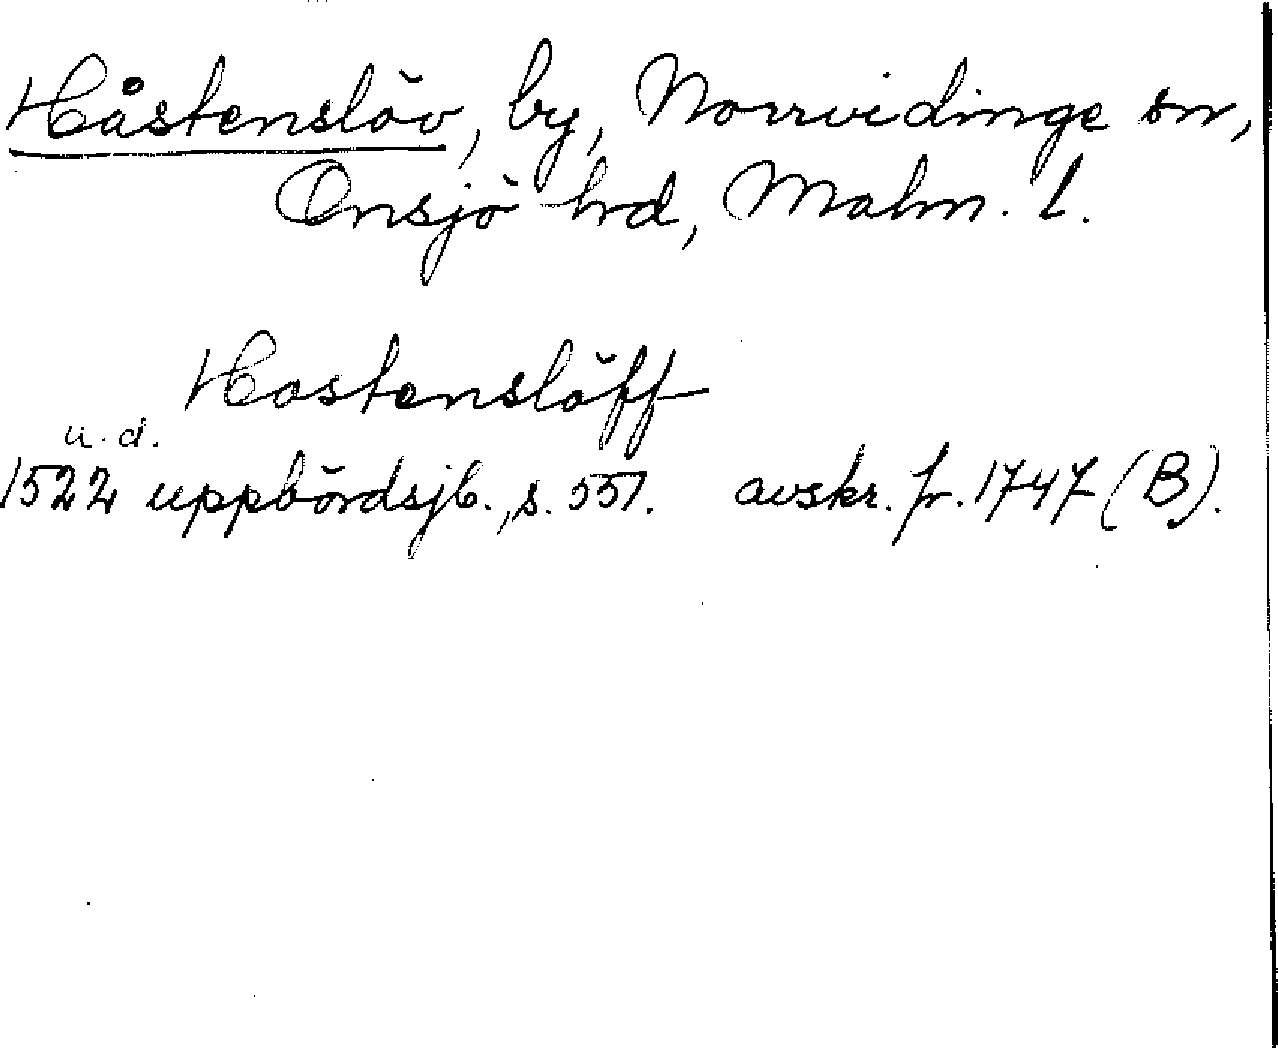 Håstenslöv, by, Norrvidinge sn,
Onsjö hrd, Malm. l.
Hostenslöff
u.d.
1522 uppbördsjb., s. 551. avskr. fr. 1747 (B).